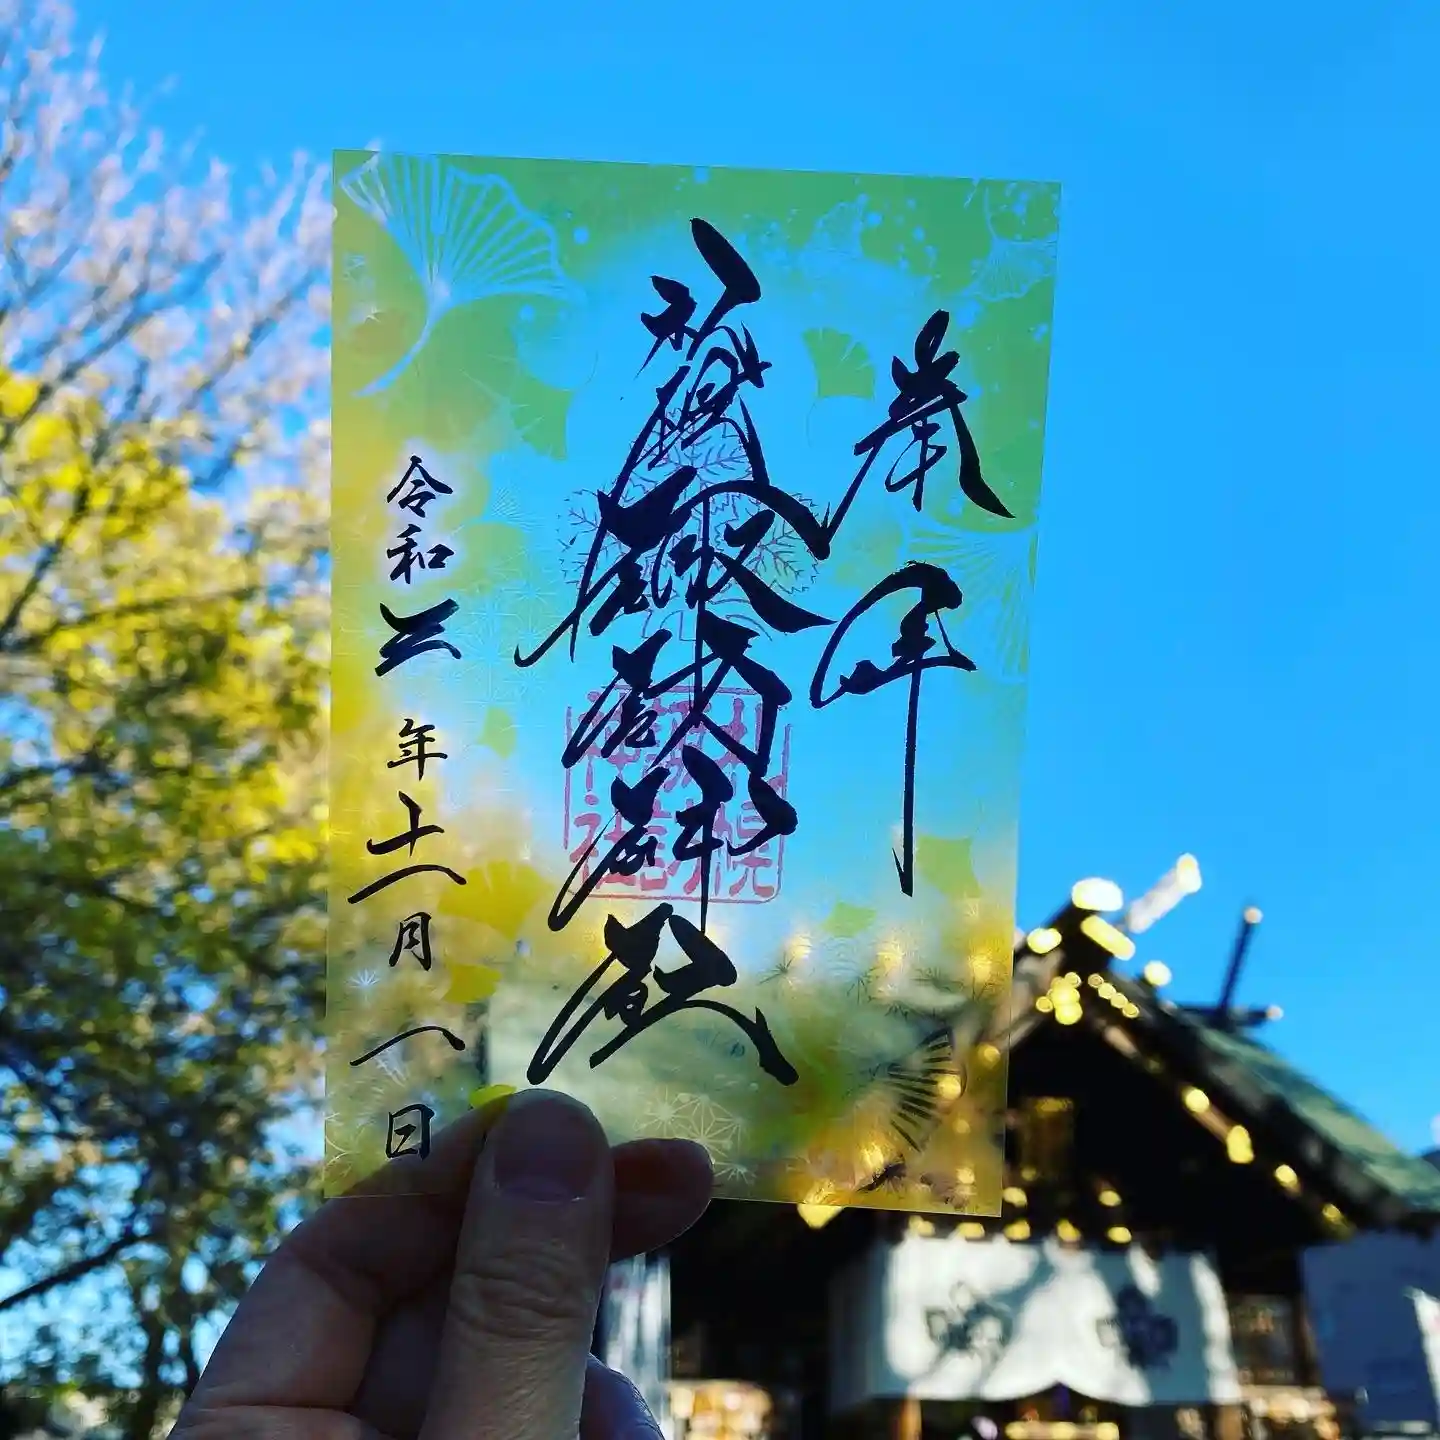 奉拝
札幌諏訪神社
札幌
諏訪
神社
令和三年十一月一日